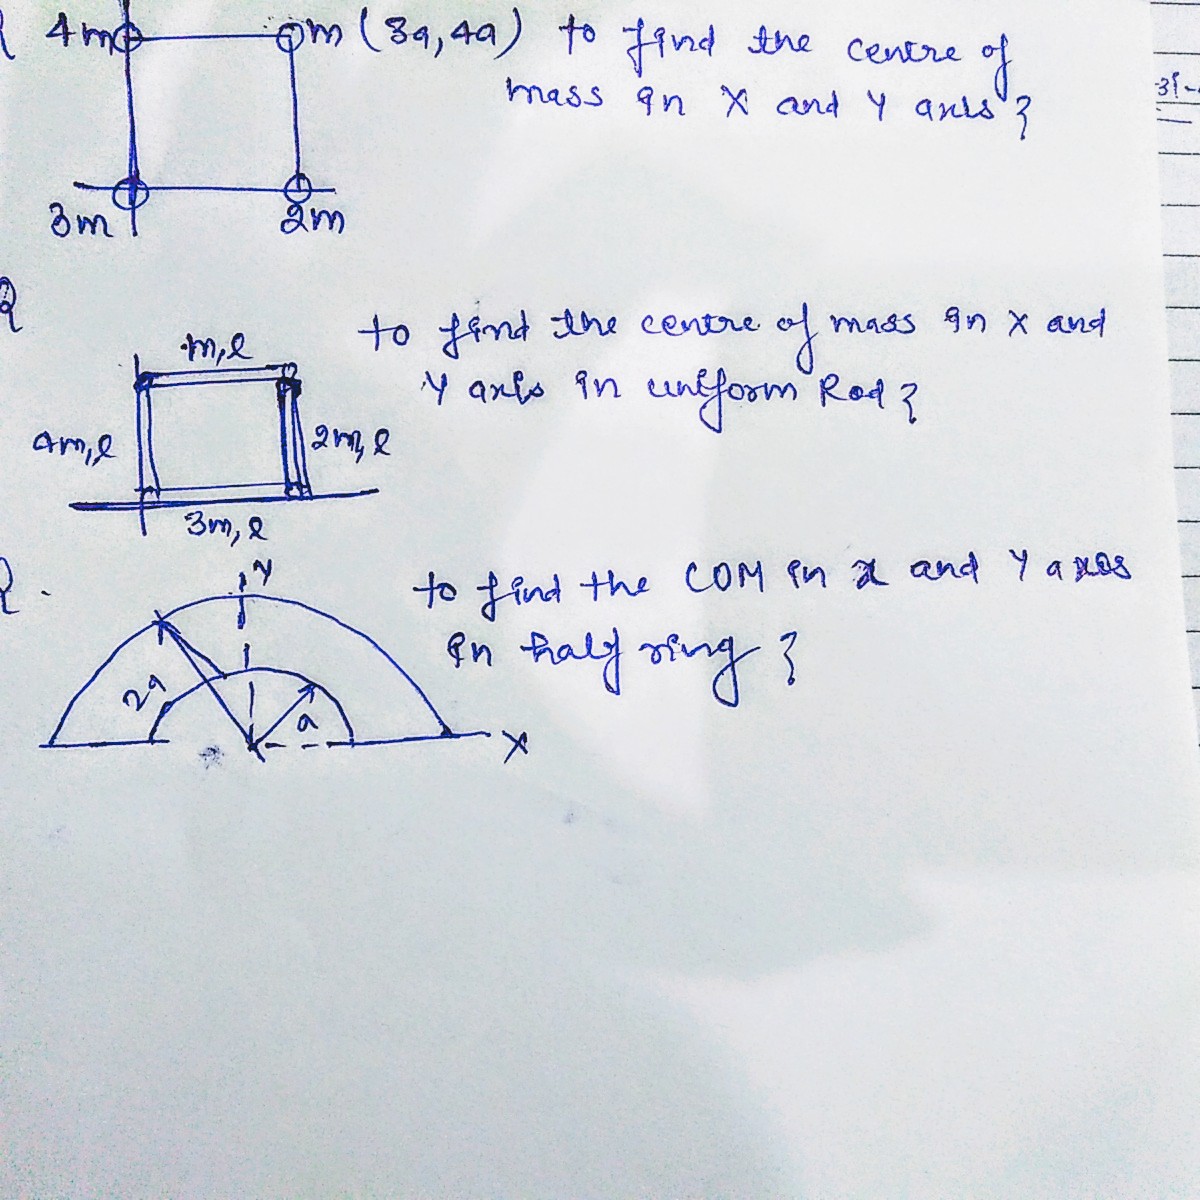 4m m (3a,4a) to find the centre of
mass in X and Y axis?
3m 2m
to find the centre of mass in x and
m,l
Y axis in uniform Rod?
4m,l 2m,l
3m,l
Y
to find the COM in x and Y axes
in half ring?
2a
a
X